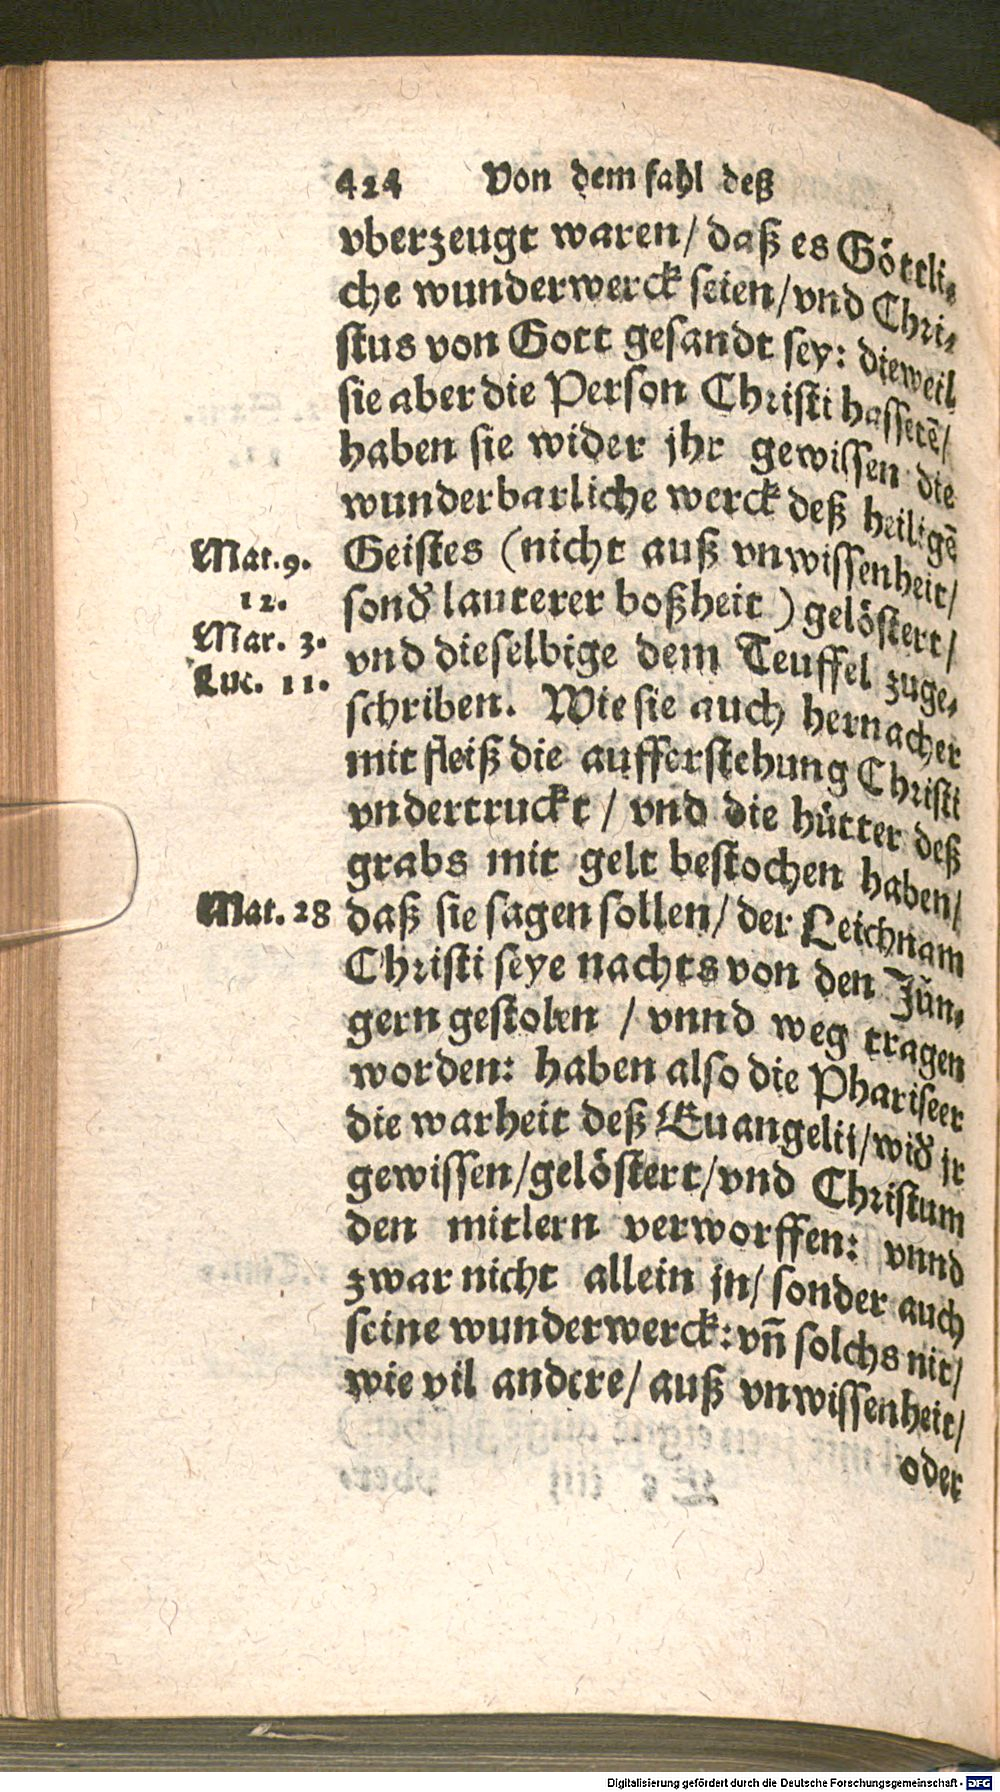 424 Von dem fahl deß
vberzeugt waren/ daß es Göttli-
che wunderwerck seien/ vnd Chri-
stus von Gott gesandt sey: dieweil
sie aber die Person Christi hassetē/
haben sie wider jhr gewissen die
wunderbarliche werck deß heiligē
Geistes (nicht auß vnwissenheit/
sonď lauterer boßheit) gelöstert/
vnd dieselbige dem Teuffel zuge-
schriben. Wie sie auch hernacher
mit fleiß die aufferstehung Christi
vndertruckt/ vnd die hütter deß
grabs mit gelt bestochen haben/
daß sie sagen sollen/ der Leichnam
Christi seye nachts von den Jün-
gern gestolen / vnnd weg tragen
worden: haben also die Phariseer
die warheit deß Euangelii/ wiď jr
gewissen/ gelöstert/ vnd Christum
den mitlern verworffen: vnnd
zwar nicht allein jn/ sonder auch
seine wunderwerck: vñ solchs nit/
wie vil andere/ auß vnwissenheit/
oder
Mat. 9.
12.
Mar. 3.
Luc. 11.
Mat. 28
Digitalisierung gefördert durch die Deutsche Forschungsgemeinschaft - DFG